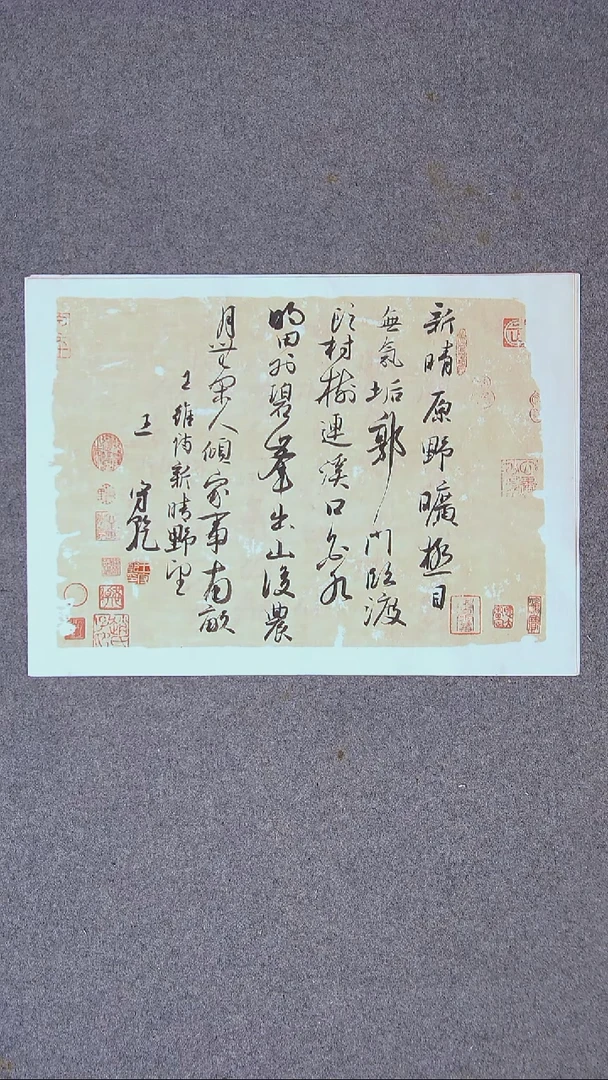 新晴原野曠極目
無氣垢郭門臨渡
頭村樹連溪口白水
明田外碧峯出山後農
月無閑人傾家事南畝
王維詩新晴野望
王守乾